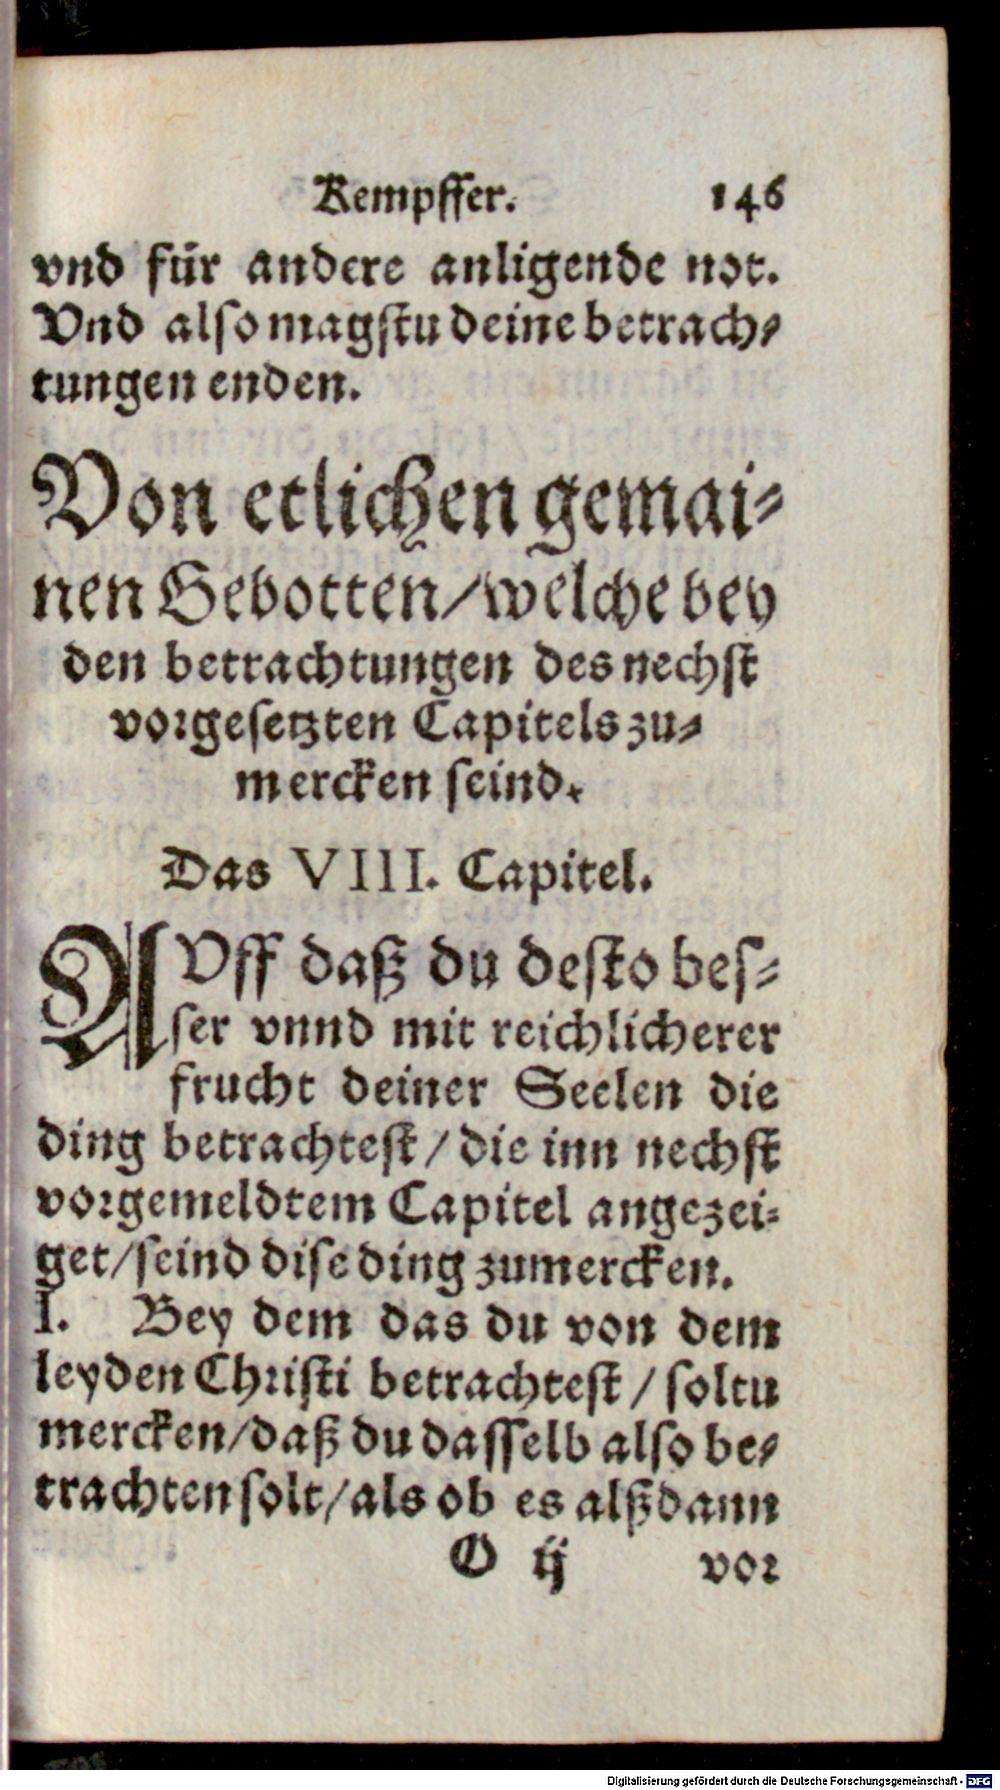 Kempffer. 146
vnd für andere anligende not.
Vnd also magstu deine betrach-
tungen enden.
Von etlichen gemai-
nen Gebotten/welche bey
den betrachtungen des nechst
vorgesetzten Capitels zu-
mercken seind.
Das VIII. Capitel.
AVff daß du desto bes-
ser vnnd mit reichlicherer
frucht deiner Seelen die
ding betrachtest/die inn nechst
vorgemeldtem Capitel angezei-
get/seind dise ding zumercken.
I. Bey dem das du von dem
leyden Christi betrachtest/soltu
mercken/daß du dasselb also be-
trachten solt/als ob es alßdann
O ij vor
Digitalisierung gefördert durch die Deutsche Forschungsgemeinschaft - DFG